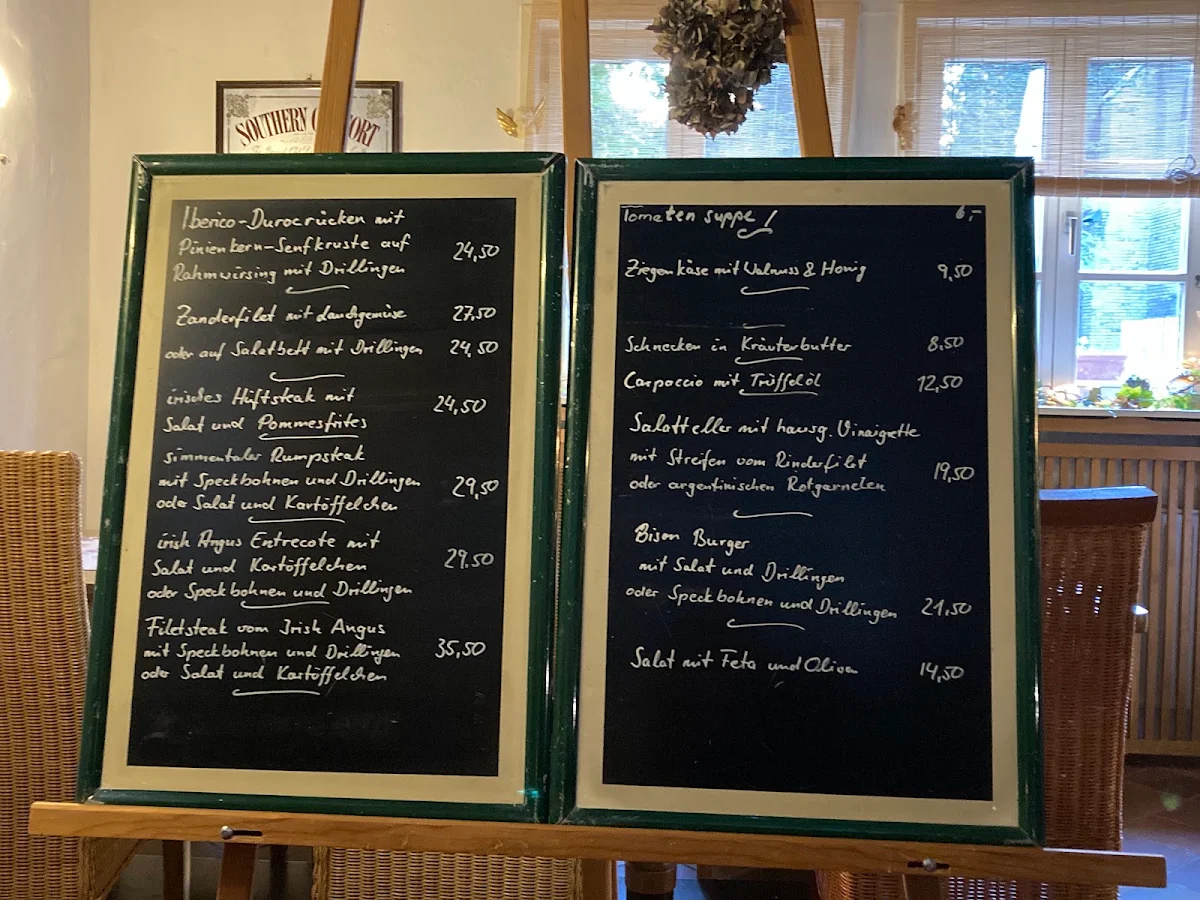 SOUTHERN
Iberico-Durocrücken mit
Pinienkern-Senfkruste auf
24,50
Rahmwirsing mit Drillingen
Zanderfilet mit Lauchgemüse 27,50
oder auf Salatbett mit Drillingen 24,50
irisches Hüftsteak mit
24,50
Salat und Pommesfrites
simmentaler Rumpsteak
mit Speckbohnen und Drillingen
29,50
oder Salat und Kartöffelchen
irish Angus Entrecote mit
29.50
Salat und Kartöffelchen
oder Speckbohnen und Drillingen
Filetsteak vom Irish Angus
mit Speckbohnen und Drillingen 35,50
oder Salat und Kartöffelchen
Tomaten suppe 6,-
Ziegenkäse mit Walnuss & Honig 9,50
Schnecken in Kräuterbutter 8,50
Carpaccio mit Trüffelöl 12,50
Salatteller mit hausg. Vinaigrette
mit Streifen vom Rinderfilet
19,50
oder argentinischen Rotgarnelen
Bison Burger
mit Salat und Drillingen
oder Speckbohnen und Drillingen 21,50
Salat mit Feta und Oliven 14,50